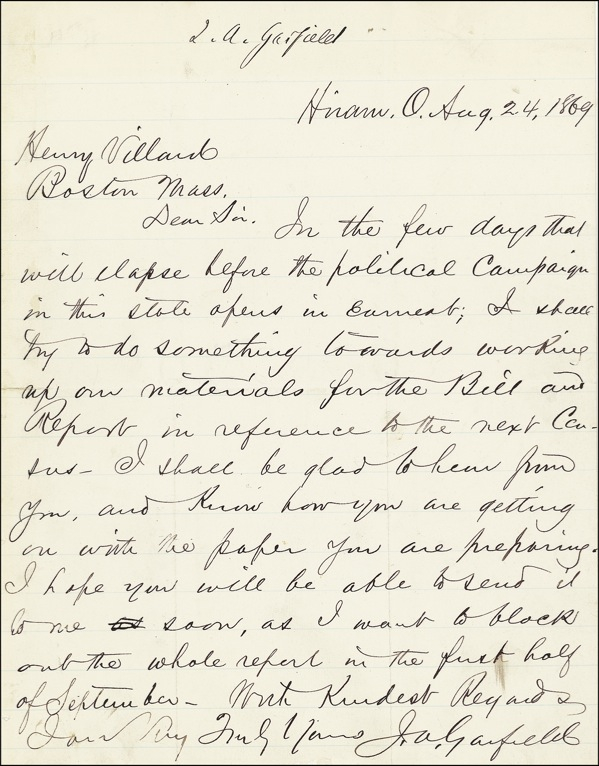 J. A. Garfield
Hiram, O. Aug. 24, 1869
Henry Villard
Boston Mass.
Dear Sir. In the few days that
will elapse before the political Campaign
in this state opens in Earnest; I shall
try to do something towards working
up our materials for the Bill and
Report in reference to the next Cen-
sus - I shall be glad to hear from
you, and know how you are getting
on with the paper you are preparing.
I hope you will be able to send it
to me as soon, as I want to block
out the whole report in the first half
of September - With Kindest Regards
I am Very Truly Yours J. A. Garfield